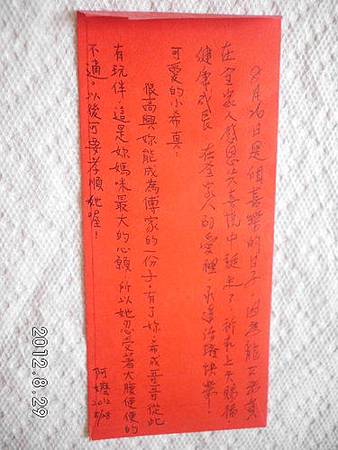 8月26日是個喜樂的日子,因為龍希真
在全家人感恩与喜悅中誕生了,祈求上天賜福
健康成長,在全家人的愛裡,永遠活潑快樂!
可愛的小希真:
很高興妳能成為傅家的一份子,有了妳,希成哥哥從此
有玩伴,這是妳媽咪最大的心願,所以她忍受著大腹便便的
不適,以後可要孝順她喔!
阿嬤
2012
8/28
2012.8.29